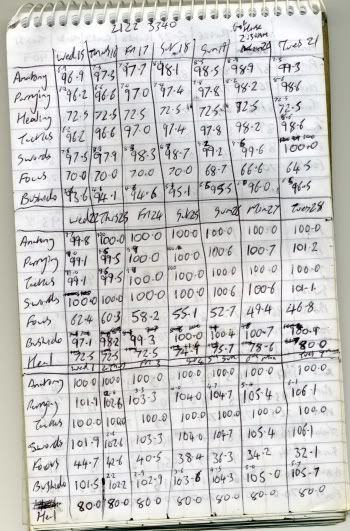 2122 3340
Wed 15 Thurs 16 Fri 17 Sat 18 Sun 19 Tues 21
Anatomy 96.9 97.5 97.7 98.1 98.5 98.9 99.3
Parrying 96.2 96.6 97.0 97.4 97.8 98.2 98.6
Healing 72.5 72.5 72.5 72.5 72.5 72.5 72.5
Tactics 96.2 96.6 97.0 97.4 97.8 98.2 98.6
Swords 97.5 97.9 98.3 98.7 99.2 99.6 100.0
Focus 70.0 70.0 70.0 70.0 68.7 66.6 64.5
Bushido 93.6 94.1 94.6 95.1 95.5 96.0 96.5
Wed 22 Thurs 23 Fri 24 Sat 25 Sun 26 Mon 27 Tues 28
Anatomy 99.8 100.0 100.0 100.0 100.0 100.0 100.0
Parrying 99.1 99.5 100.0 100.6 100.7 101.2
Tactics 99.1 99.5 100.0 100.0 100.0 100.0
Swords 100.0 100.0 100.0 100.0 100.6 100.6 101.1
Focus 62.4 60.3 58.2 55.1 52.7 49.4 46.8
Bushido 97.1 98.2 99.3 100.0 100.4 100.7 100.9
Heal 72.5 72.5 72.5 74.9 75.7 78.6 80.0
Wed 1
Anatomy 100.0 100.0 100.0 100.0 100.0 100.0 100.0
Parrying 101.9 102.6 103.3 104.0 104.7 105.4 106.1
Tactics 100.0 100.0 100.0 100.0 100.0 100.0 100.0
Swords 101.9 102.6 103.3 104.0 104.7 105.4 106.1
Focus 44.7 42.6 40.5 38.4 36.3 34.2 32.1
Bushido 101.5 102.2 102.9 103.6 104.3 105.0 105.7
Heal 80.0 80.0 80.0 80.0 80.0 80.0 80.0